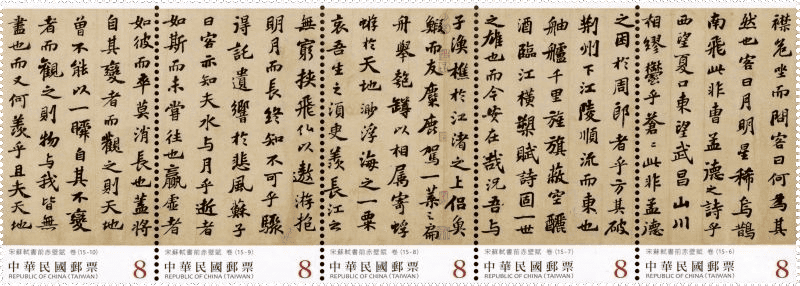 襟危坐而問客曰何為其
然也客曰月明星稀烏鵲
南飛此非曹孟德之詩乎
西望夏口東望武昌山川
相繆鬱乎蒼〻此非孟德
之困於周郎者乎方其破
荊州下江陵順流而東也
舳艫千里旌旗蔽空釃
酒臨江橫槊賦詩固一世
之雄也而今安在哉況吾與
子漁樵於江渚之上侶魚
鰕而友麋鹿駕一葉之扁
舟舉匏罇以相属寄蜉
蝣於天地渺浮海之一粟
哀吾生之須臾羨長江之
無窮挾飛仙以遨游抱
明月而長終知不可乎驟
得託遺響於悲風蘇子
曰客亦知夫水與月乎逝者
如斯而未嘗往也贏虛者
如彼而卒莫消長也蓋將
自其變者而觀之則天地
曾不能以一瞬自其不變
者而觀之則物與我皆無
盡也而又何羨乎且夫天地
宋蘇軾書前赤壁賦 卷 (15-10)
中華民國郵票 8
REPUBLIC OF CHINA (TAIWAN)
宋蘇軾書前赤壁賦 卷 (15-9)
中華民國郵票 8
REPUBLIC OF CHINA (TAIWAN)
宋蘇軾書前赤壁賦 卷 (15-8)
中華民國郵票 8
REPUBLIC OF CHINA (TAIWAN)
宋蘇軾書前赤壁賦 卷 (15-7)
中華民國郵票 8
REPUBLIC OF CHINA (TAIWAN)
宋蘇軾書前赤壁賦 卷 (15-6)
中華民國郵票 8
REPUBLIC OF CHINA (TAIWAN)